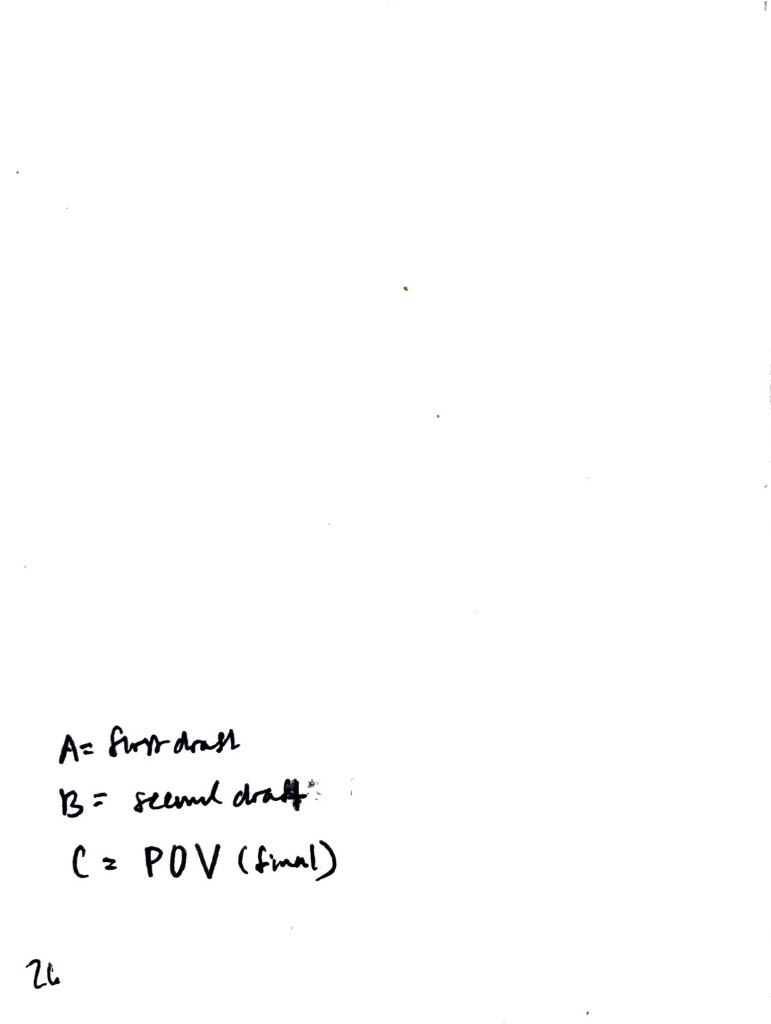 A = first draft
B = second draft
C = POV (final)
26